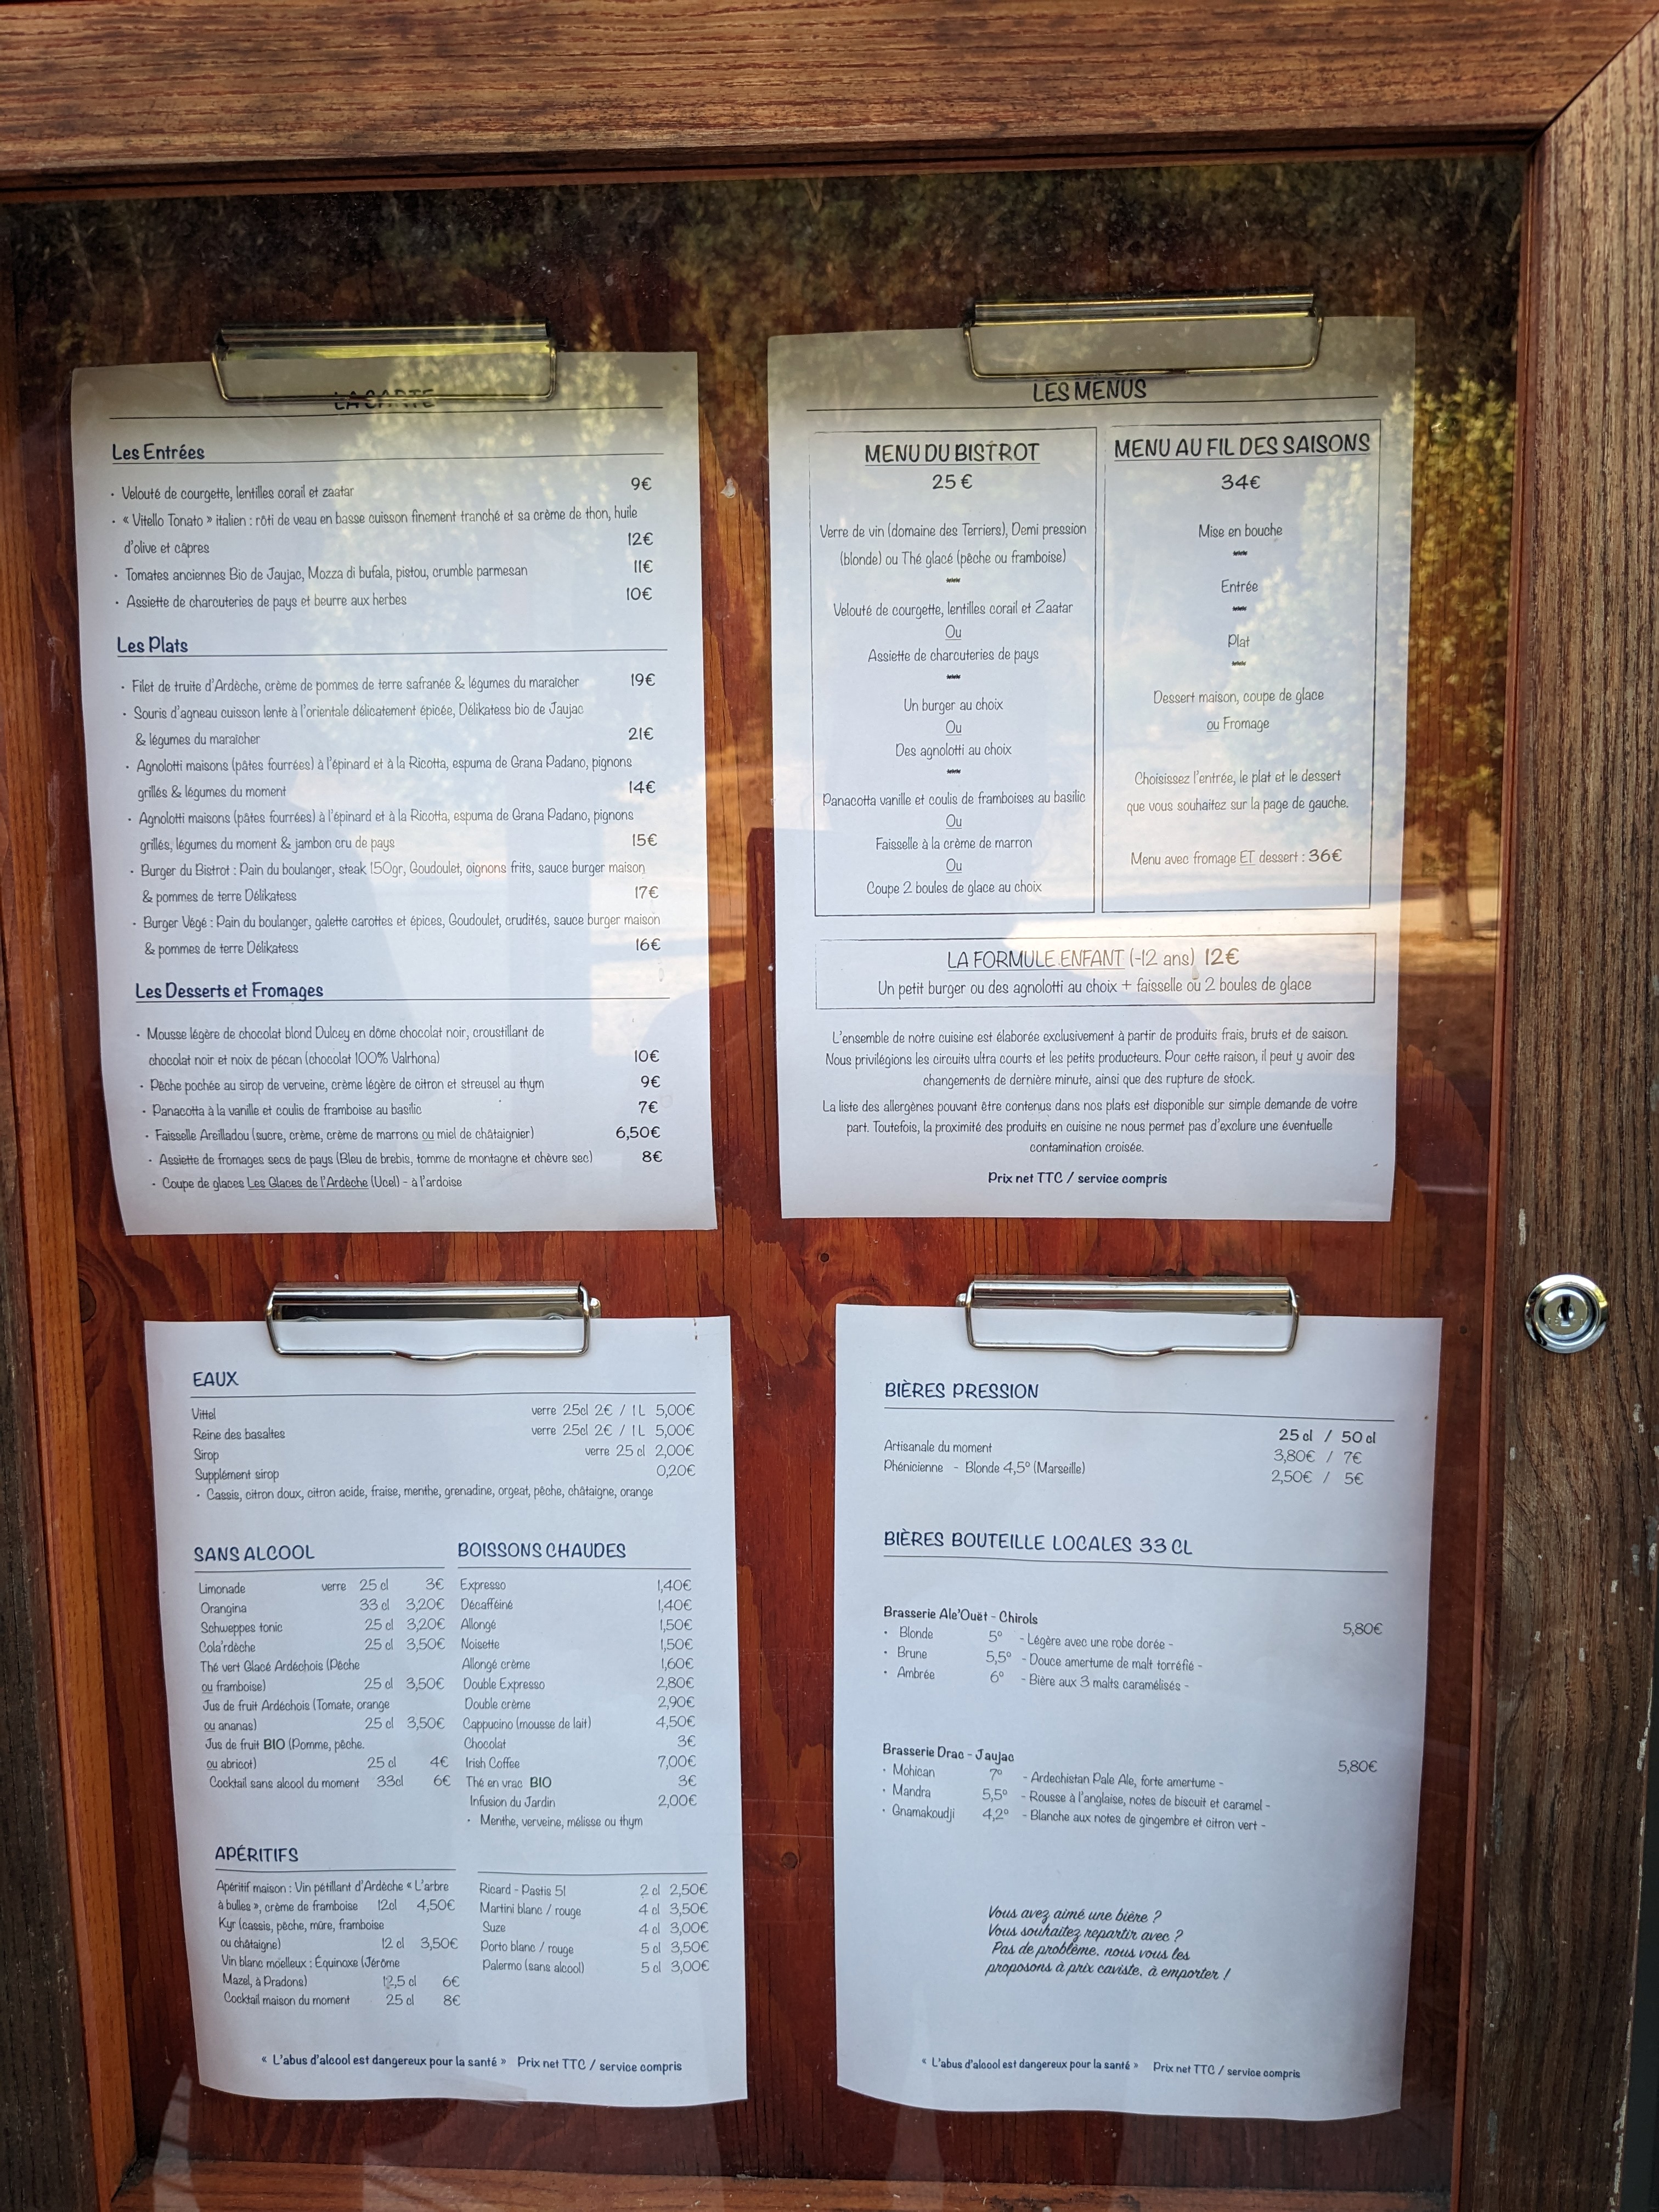 LA CARTE
Les Entrées
• Velouté de courgette, lentilles corail et zaatar 9€
• « Vitello Tonato » italien : rôti de veau en basse cuisson finement tranché et sa crème de thon, huile
d'olive et câpres 12€
• Tomates anciennes Bio de Jaujac, Mozza di bufala, pistou, crumble parmesan 11€
• Assiette de charcuteries de pays et beurre aux herbes 10€
Les Plats
• Filet de truite d'Ardèche, crème de pommes de terre safranée & légumes du maraîcher 19€
• Souris d'agneau cuisson lente à l'orientale délicatement épicée, Délikatess bio de Jaujac
& légumes du maraîcher 21€
• Agnolotti maisons (pâtes fourrées) à l'épinard et à la Ricotta, espuma de Grana Padano, pignons
grillés & légumes du moment 14€
• Agnolotti maisons (pâtes fourrées) à l'épinard et à la Ricotta, espuma de Grana Padano, pignons
grillés, légumes du moment & jambon cru de pays 15€
• Burger du Bistrot : Pain du boulanger, steak 150gr, Goudoulet, oignons frits, sauce burger maison
& pommes de terre Délikatess 17€
• Burger Végé : Pain du boulanger, galette carottes et épices, Goudoulet, crudités, sauce burger maison
& pommes de terre Délikatess 16€
Les Desserts et Fromages
• Mousse légère de chocolat blond Dulcey en dôme chocolat noir, croustillant de
chocolat noir et noix de pécan (chocolat 100% Valrhona) 10€
• Pêche pochée au sirop de verveine, crème légère de citron et streusel au thym 9€
• Panacotta à la vanille et coulis de framboise au basilic 7€
• Faisselle Areilladou (sucre, crème, crème de marrons ou miel de châtaignier) 6,50€
• Assiette de fromages secs de pays (Bleu de brebis, tomme de montagne et chèvre sec) 8€
• Coupe de glaces Les Glaces de l'Ardèche (Ucel) - à l'ardoise
LES MENUS
MENU DU BISTROT
25 €
Verre de vin (domaine des Terriers), Demi pression
(blonde) ou Thé glacé (pêche ou framboise)
~~~
Velouté de courgette, lentilles corail et Zaatar
Ou
Assiette de charcuteries de pays
~~~
Un burger au choix
Ou
Des agnolotti au choix
~~~
Panacotta vanille et coulis de framboises au basilic
Ou
Faisselle à la crème de marron
Ou
Coupe 2 boules de glace au choix
MENU AU FIL DES SAISONS
34€
Mise en bouche
~~~
Entrée
~~~
Plat
~~~
Dessert maison, coupe de glace
ou Fromage
Choisissez l'entrée, le plat et le dessert
que vous souhaitez sur la page de gauche.
Menu avec fromage ET dessert : 36€
LA FORMULE ENFANT (-12 ans) 12€
Un petit burger ou des agnolotti au choix + faisselle ou 2 boules de glace
L'ensemble de notre cuisine est élaborée exclusivement à partir de produits frais, bruts et de saison.
Nous privilégions les circuits ultra courts et les petits producteurs. Pour cette raison, il peut y avoir des
changements de dernière minute, ainsi que des rupture de stock.
La liste des allergènes pouvant être contenus dans nos plats est disponible sur simple demande de votre
part. Toutefois, la proximité des produits en cuisine ne nous permet pas d'exclure une éventuelle
contamination croisée.
Prix net TTC / service compris
EAUX
Vittel verre 25cl 2€ / 1L 5,00€
Reine des basaltes verre 25cl 2€ / 1L 5,00€
Sirop verre 25 cl 2,00€
Supplément sirop 0,20€
• Cassis, citron doux, citron acide, fraise, menthe, grenadine, orgeat, pêche, châtaigne, orange
SANS ALCOOL
Limonade verre 25 cl 3€
Orangina 33 cl 3,20€
Schweppes tonic 25 cl 3,20€
Cola'rdèche 25 cl 3,50€
Thé vert Glacé Ardéchois (Pêche
ou framboise) 25 cl 3,50€
Jus de fruit Ardéchois (Tomate, orange
ou ananas) 25 cl 3,50€
Jus de fruit BIO (Pomme, pêche.
ou abricot) 25 cl 4€
Cocktail sans alcool du moment 33cl 6€
BOISSONS CHAUDES
Expresso 1,40€
Décafféiné 1,40€
Allongé 1,50€
Noisette 1,50€
Allongé crème 1,60€
Double Expresso 2,80€
Double crème 2,90€
Cappucino (mousse de lait) 4,50€
Chocolat 3€
Irish Coffee 7,00€
Thé en vrac BIO 3€
Infusion du Jardin 2,00€
• Menthe, verveine, mélisse ou thym
APÉRITIFS
Apéritif maison : Vin pétillant d'Ardèche « L'arbre
à bulles », crème de framboise 12cl 4,50€
Kyr (cassis, pêche, mûre, framboise
ou châtaigne) 12 cl 3,50€
Vin blanc moelleux : Équinoxe (Jérôme
Mazel, à Pradons) 12,5 cl 6€
Cocktail maison du moment 25 cl 8€
Ricard - Pastis 51 2 cl 2,50€
Martini blanc / rouge 4 cl 3,50€
Suze 4 cl 3,00€
Porto blanc / rouge 5 cl 3,50€
Palermo (sans alcool) 5 cl 3,00€
« L'abus d'alcool est dangereux pour la santé » Prix net TTC / service compris
BIÈRES PRESSION
25 cl / 50 cl
Artisanale du moment 3,80€ / 7€
Phénicienne - Blonde 4,5° (Marseille) 2,50€ / 5€
BIÈRES BOUTEILLE LOCALES 33 CL
Brasserie Ale'Ouët - Chirols 5,80€
• Blonde 5° - Légère avec une robe dorée -
• Brune 5,5° - Douce amertume de malt torréfié -
• Ambrée 6° - Bière aux 3 malts caramélisés -
Brasserie Drac - Jaujac 5,80€
• Mohican 7° - Ardechistan Pale Ale, forte amertume -
• Mandra 5,5° - Rousse à l'anglaise, notes de biscuit et caramel -
• Gnamakoudji 4,2° - Blanche aux notes de gingembre et citron vert -
Vous avez aimé une bière ?
Vous souhaitez repartir avec ?
Pas de problème, nous vous les
proposons à prix caviste, à emporter !
« L'abus d'alcool est dangereux pour la santé » Prix net TTC / service compris